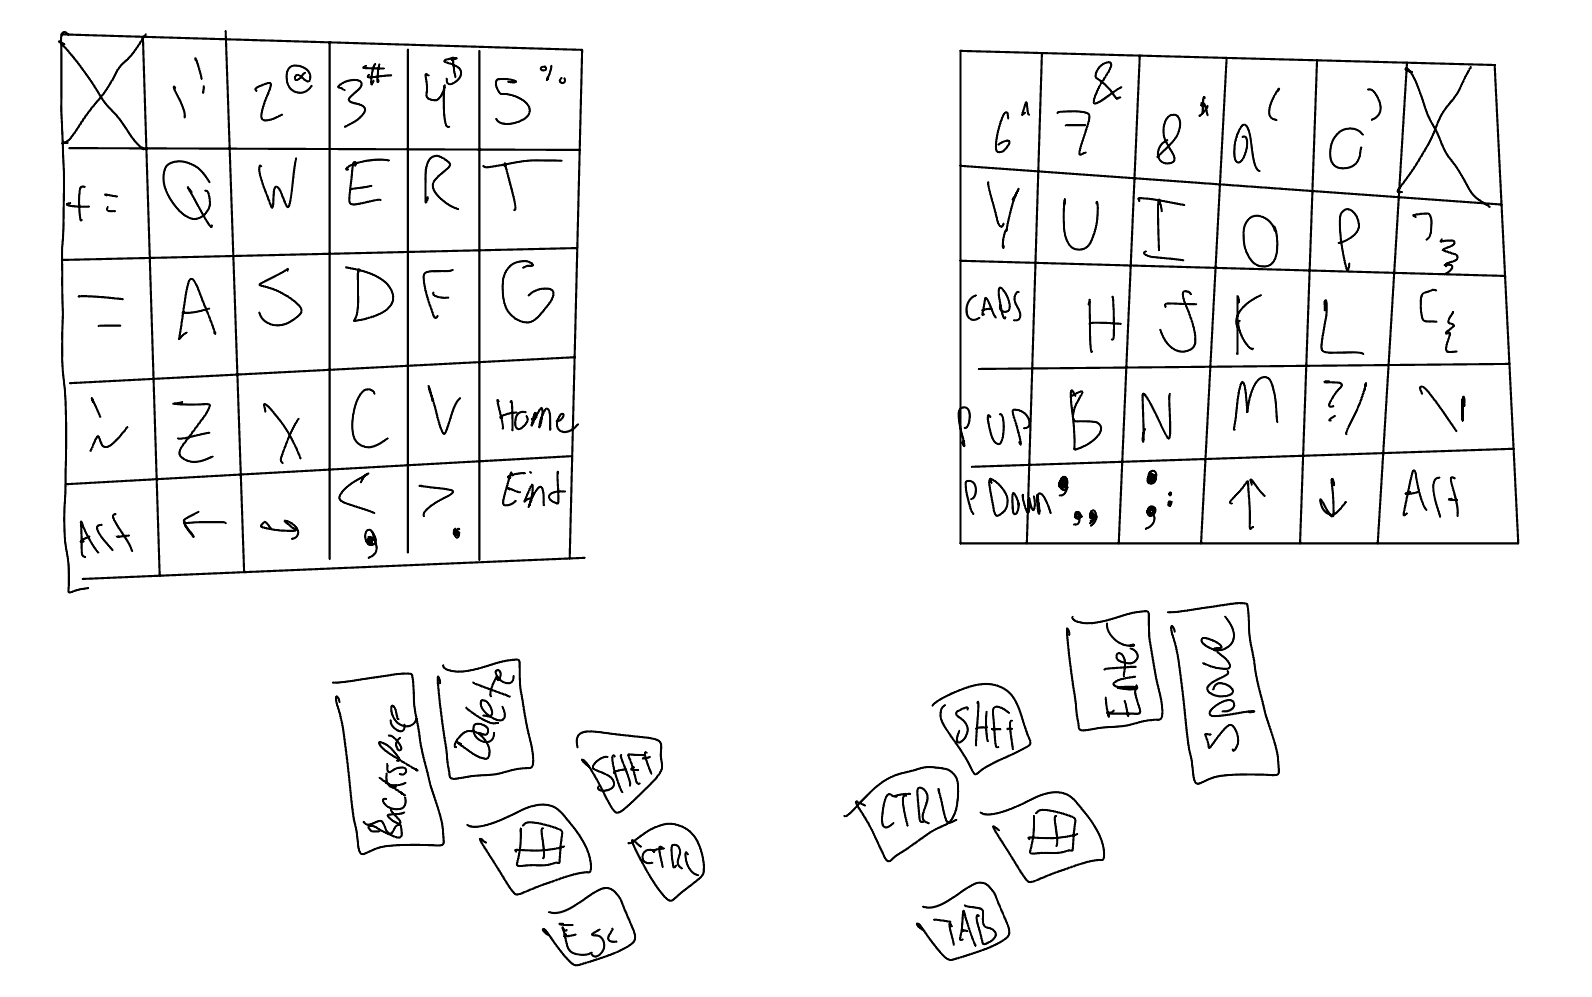 1 ! 2 @ 3 # 4 $ 5 %
+ = Q W E R T
A S D F G
` ~ Z X C V Home
Alt ← → < , > . End
6 ^ 7 & 8 * 9 ( 0 )
Y U I O P ] }
CAPS H J K L [ {
P UP B N M ? / \ |
P Down ' ,, ; : ↑ ↓ Alt
Backspace
Delete
SHFt
CTRL
Esc
SHFt
Enter
Space
CTRL
TAB